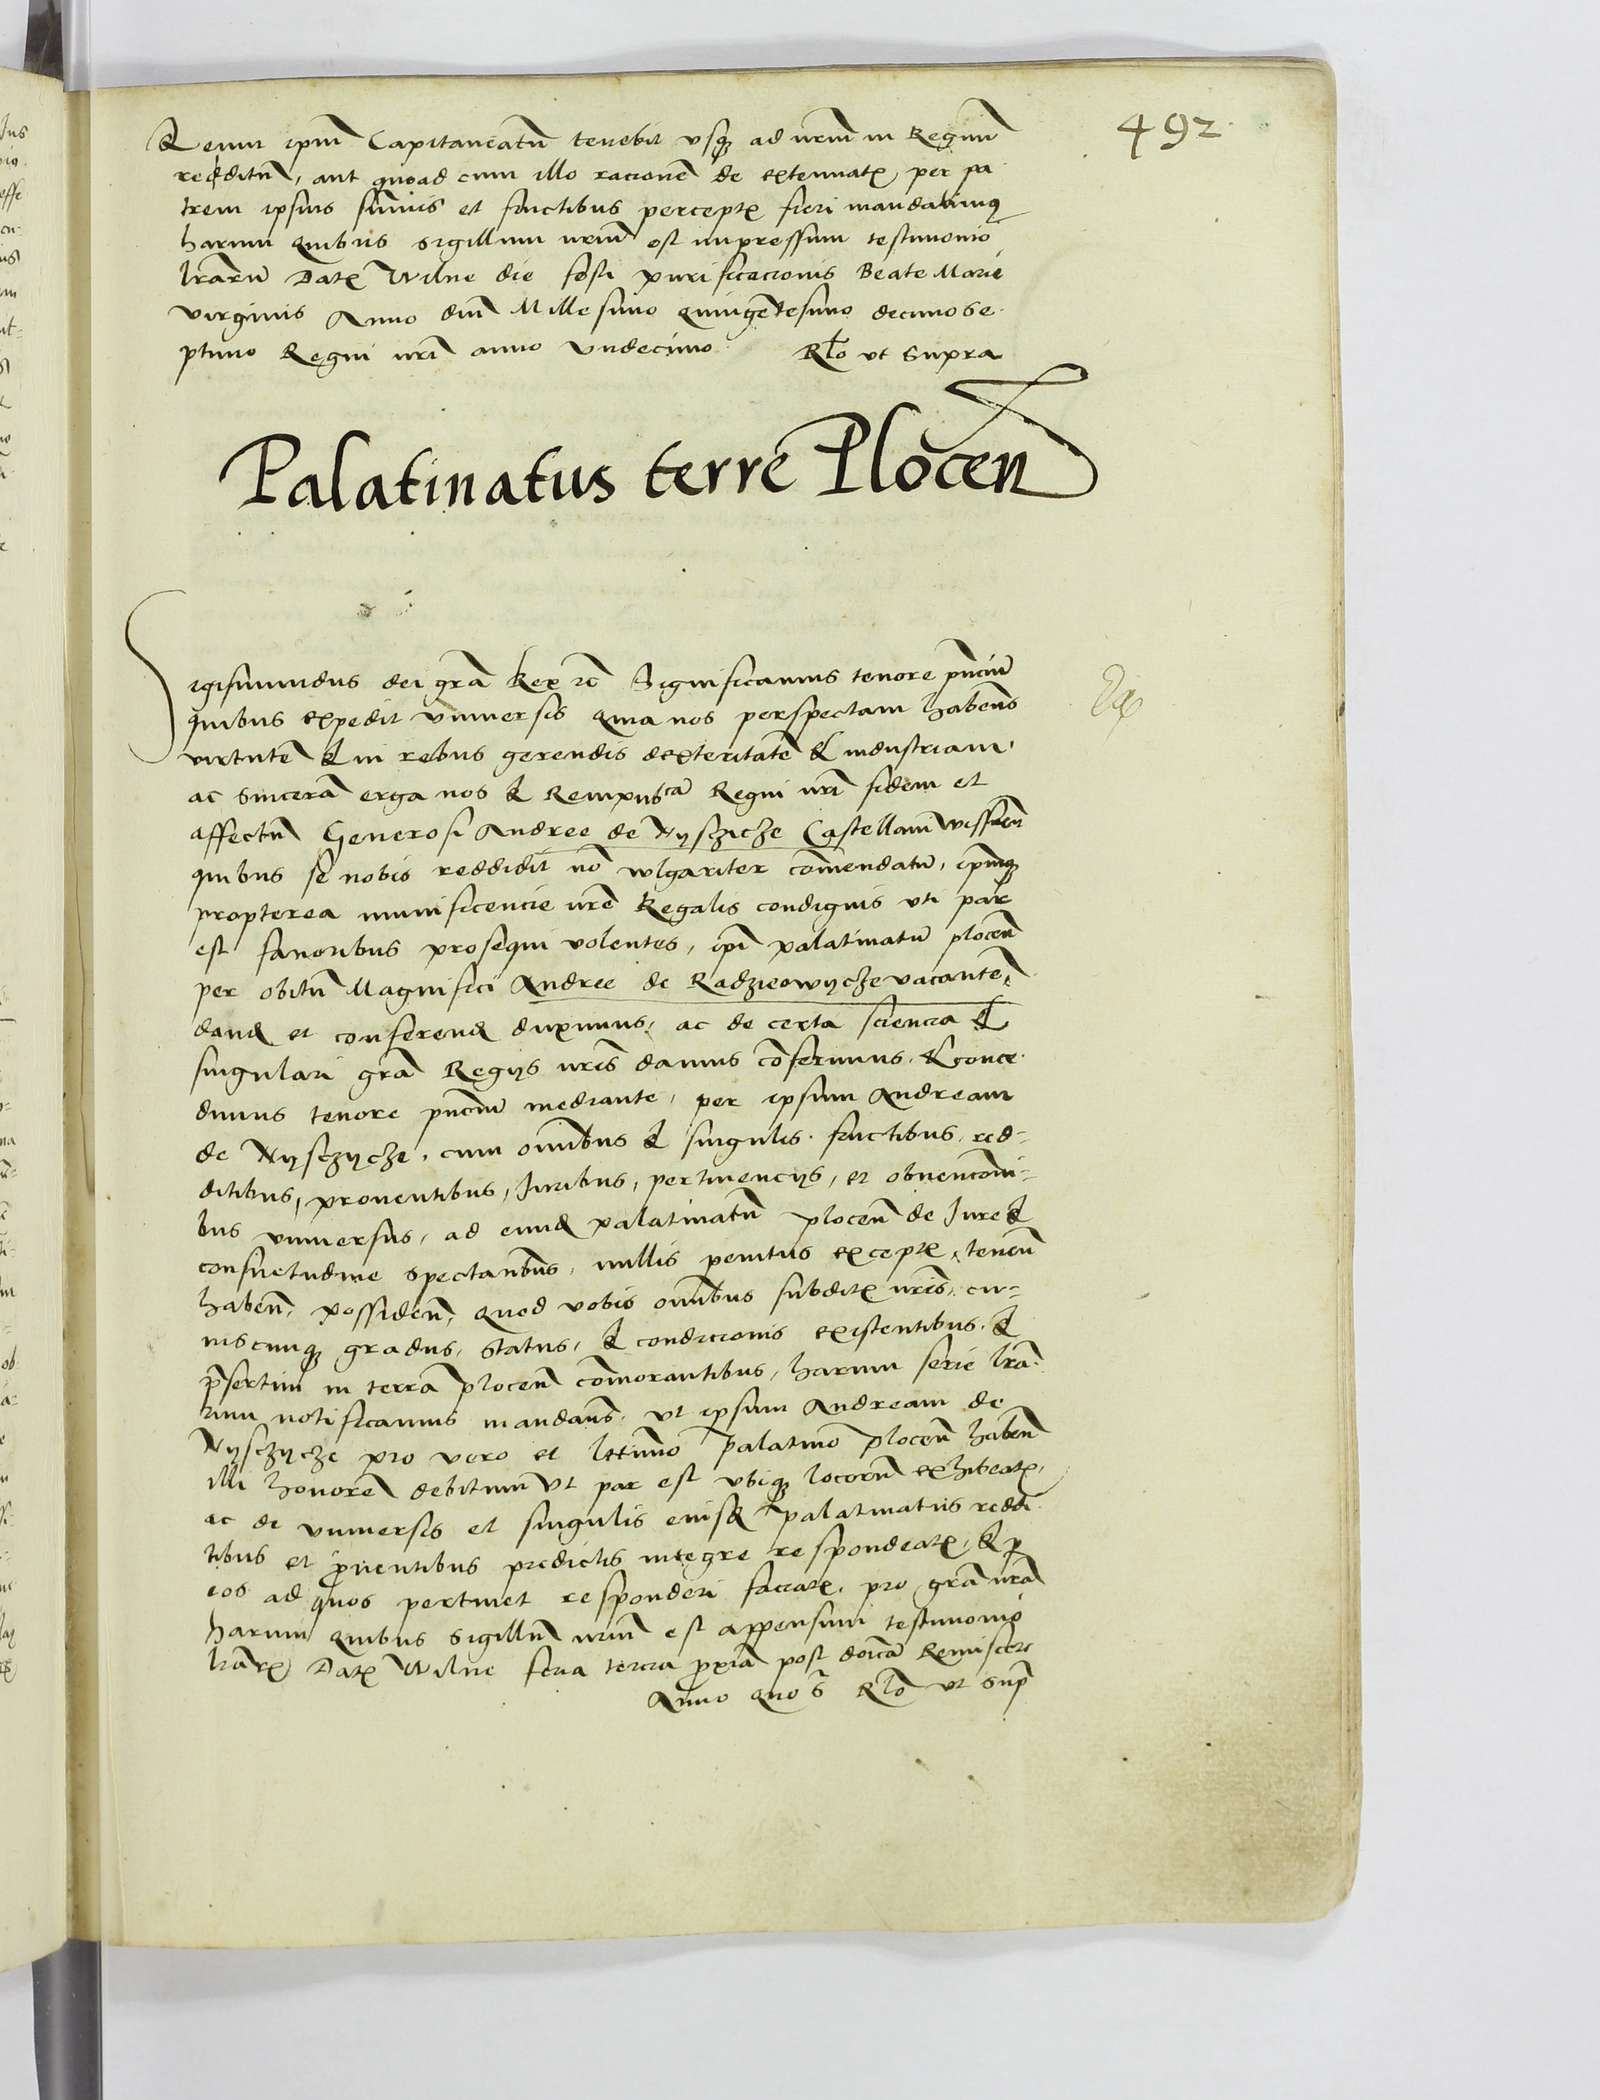 492
Quem ipm̄ Capitaneatū tenebit vsq̨ ad nrm̄ in Regnum̄
redditū, aut quoad cum illo racionē de extenuatꝭ per pa
trem ipsius sum̄is et fructibus perceptꝭ fieri mandabimꝰ
harum quibus sigillum nrum̄ est impressum testimonio
lrarū Datꝭ Wilne die festi purificacionis Beate Marie
virginis Anno dnī Millesimo quingētesimo decimo se
ptimo Regni nrī anno vndecimo Rlō vt supra
Palatinatus terre Plocen̄
Sigismundus dei grā Rex ꝛc̄ Significamus tenore pn̄ciū
quibus expedit vniuersis quia nos perspectam habentes̄
virtutē & in rebus gerendis dexteritatē & industriam,
ac sincerā erga nos & Rempubcā Regni nrī fidem et
affectū Generosi Andree de Nysczicze Castellani Wissen̄
quibus se nobis reddidit nō wlgariter com̄endatū, ipm̄q̨
propterea munificencie nrē Regalis condignis vti par
est fauoribus prosequi volentes, ipī palatinatū plocen̄
per obitū Magnifici Andree de Radzieowycze vacantē,
dand̄ et conferend̄ duximus, ac de certa sciencia &
singulari grā Regijs nrīs damus cōferimus & conce
dimus tenore pn̄ciū mediante, per ipsum Andream
de Nysczycze, cum om̄ibus & singulis fructibus, red-
ditibus, prouentibus, Iuribus, pertinencijs, et obuencōni-
bus vniuersis, ad eund̄ palatinatū plocen̄ de Iure &
consuetudine spectantibus̄, nullis penitus exceptꝭ, tenen̄
haben̄, possiden̄, Quod vobis om̄ibus subditꝭ nrīs, cu-
iuscunq̨ gradus, status, & condicionis existentibus, &
p̄sertim in terrā plocen̄ com̄orantibus, harum serie lrā
rum notificamus mandan̄s, vt ipsum Andream de
Nysczycze pro vero et lttīmo palatino plocen̄ haben̄
illi honorē debitum vt par est vbiq̨ locorū exhibeatꝭ,
ac de vniuersis et singulis eiusd̄ palatinatus reddi
tibus et p̄uentibus predictis integre respondeatꝭ, & p̄
eos ad quos pertinet responderi faciatꝭ, pro grā nrā
harum quibus sigillū nrum̄ est appensum testimonio
lrarꝭ Datꝭ Wilne feria tercia p̄xiā post dōicā Reminiscere
Anno quo s̄ Rlō vt sup̄